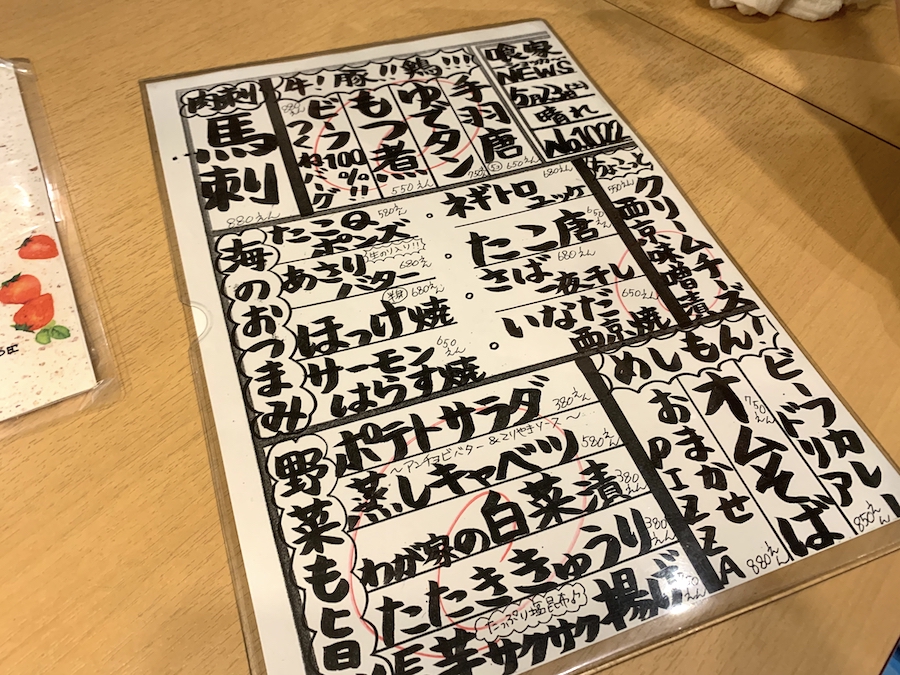 喰家
NEWS
晴れ
No.1022
手羽唐
650えん
ゆでタン
もつ煮
550えん
ビーフ100%!!
つくねバーグ
牛!豚!!鶏!!!
肉刺
馬刺
880えん
ちょこっと
クリームチーズ
西京味噌漬
550えん
海のおつまみ
たこQポンズ
580えん
ネギトロユッケ
680えん
あさりバター
生のり入り!!
680えん
たこ唐
650えん
ほっけ焼
680えん
さば一夜干し
680えん
サーモンはらす焼
650えん
いなだ西京焼
650えん
めしもん!
ビーフカレードリア
850えん
オムそば
750えん
おまかせPIZZA
880えん
野菜も旨
ポテトサラダ
380えん
〜アンチョビバター&てりやきソース〜
蒸しキャベツ
580えん
わが家の白菜漬
380えん
たたききゅうり
380えん
たっぷり塩昆布よ
芋サクサク揚げ